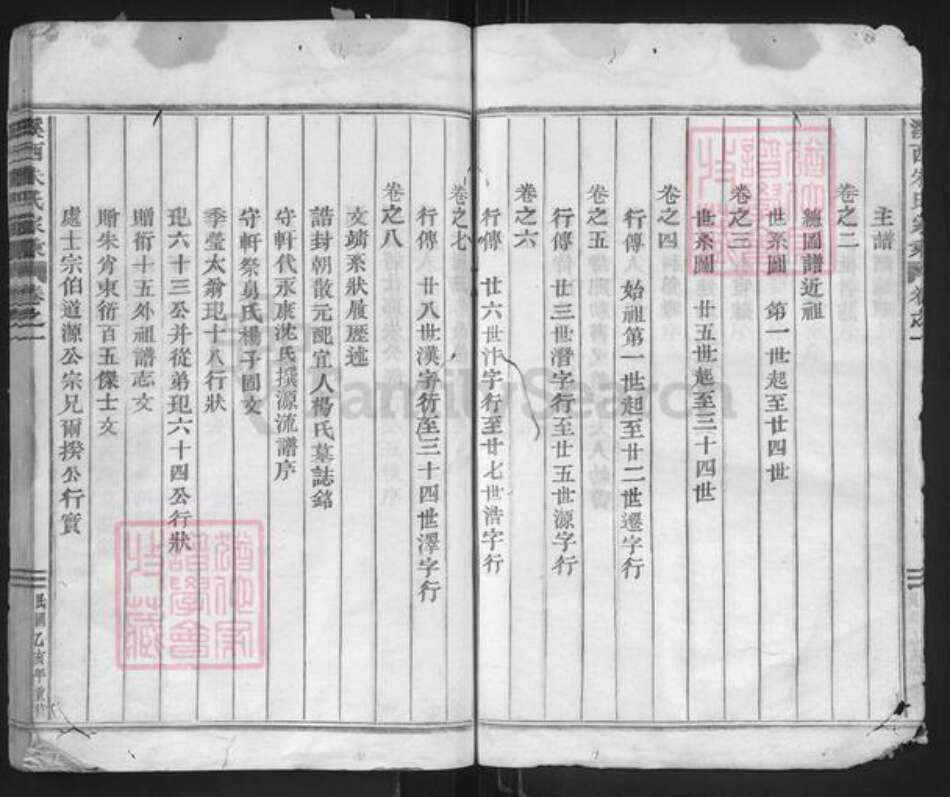 主譜
卷之二
總圖譜近祖
世系圖 第一世起至廿四世
卷之三
世系圖 廿五世起至三十四世
卷之四
行傳 始祖第一世起至廿二世遷字行
卷之五
行傳 廿三世潛字行至廿五世源字行
卷之六
行傳 廿六世汴字行至廿七世浩字行
卷之七
行傳 廿八世漢字行至三十四世澤字行
卷之八
文靖系狀履歷述
誥封朝散元配宜人楊氏墓誌銘
守軒代永康沈氏撰源流譜序
守軒祭舅氏楊子固文
季瑩太翁玘十八行狀
玘六十三公并從弟玘六十四公行狀
贈衍十五外祖譜志文
贈朱肖東衍百五傑士文
處士宗伯道源公宗兄爾揆公行實
溪西朱氏家乘 卷之一
民國乙亥年重修
猶他家譜學會收藏
猶他家譜學會收藏
FamilySearch